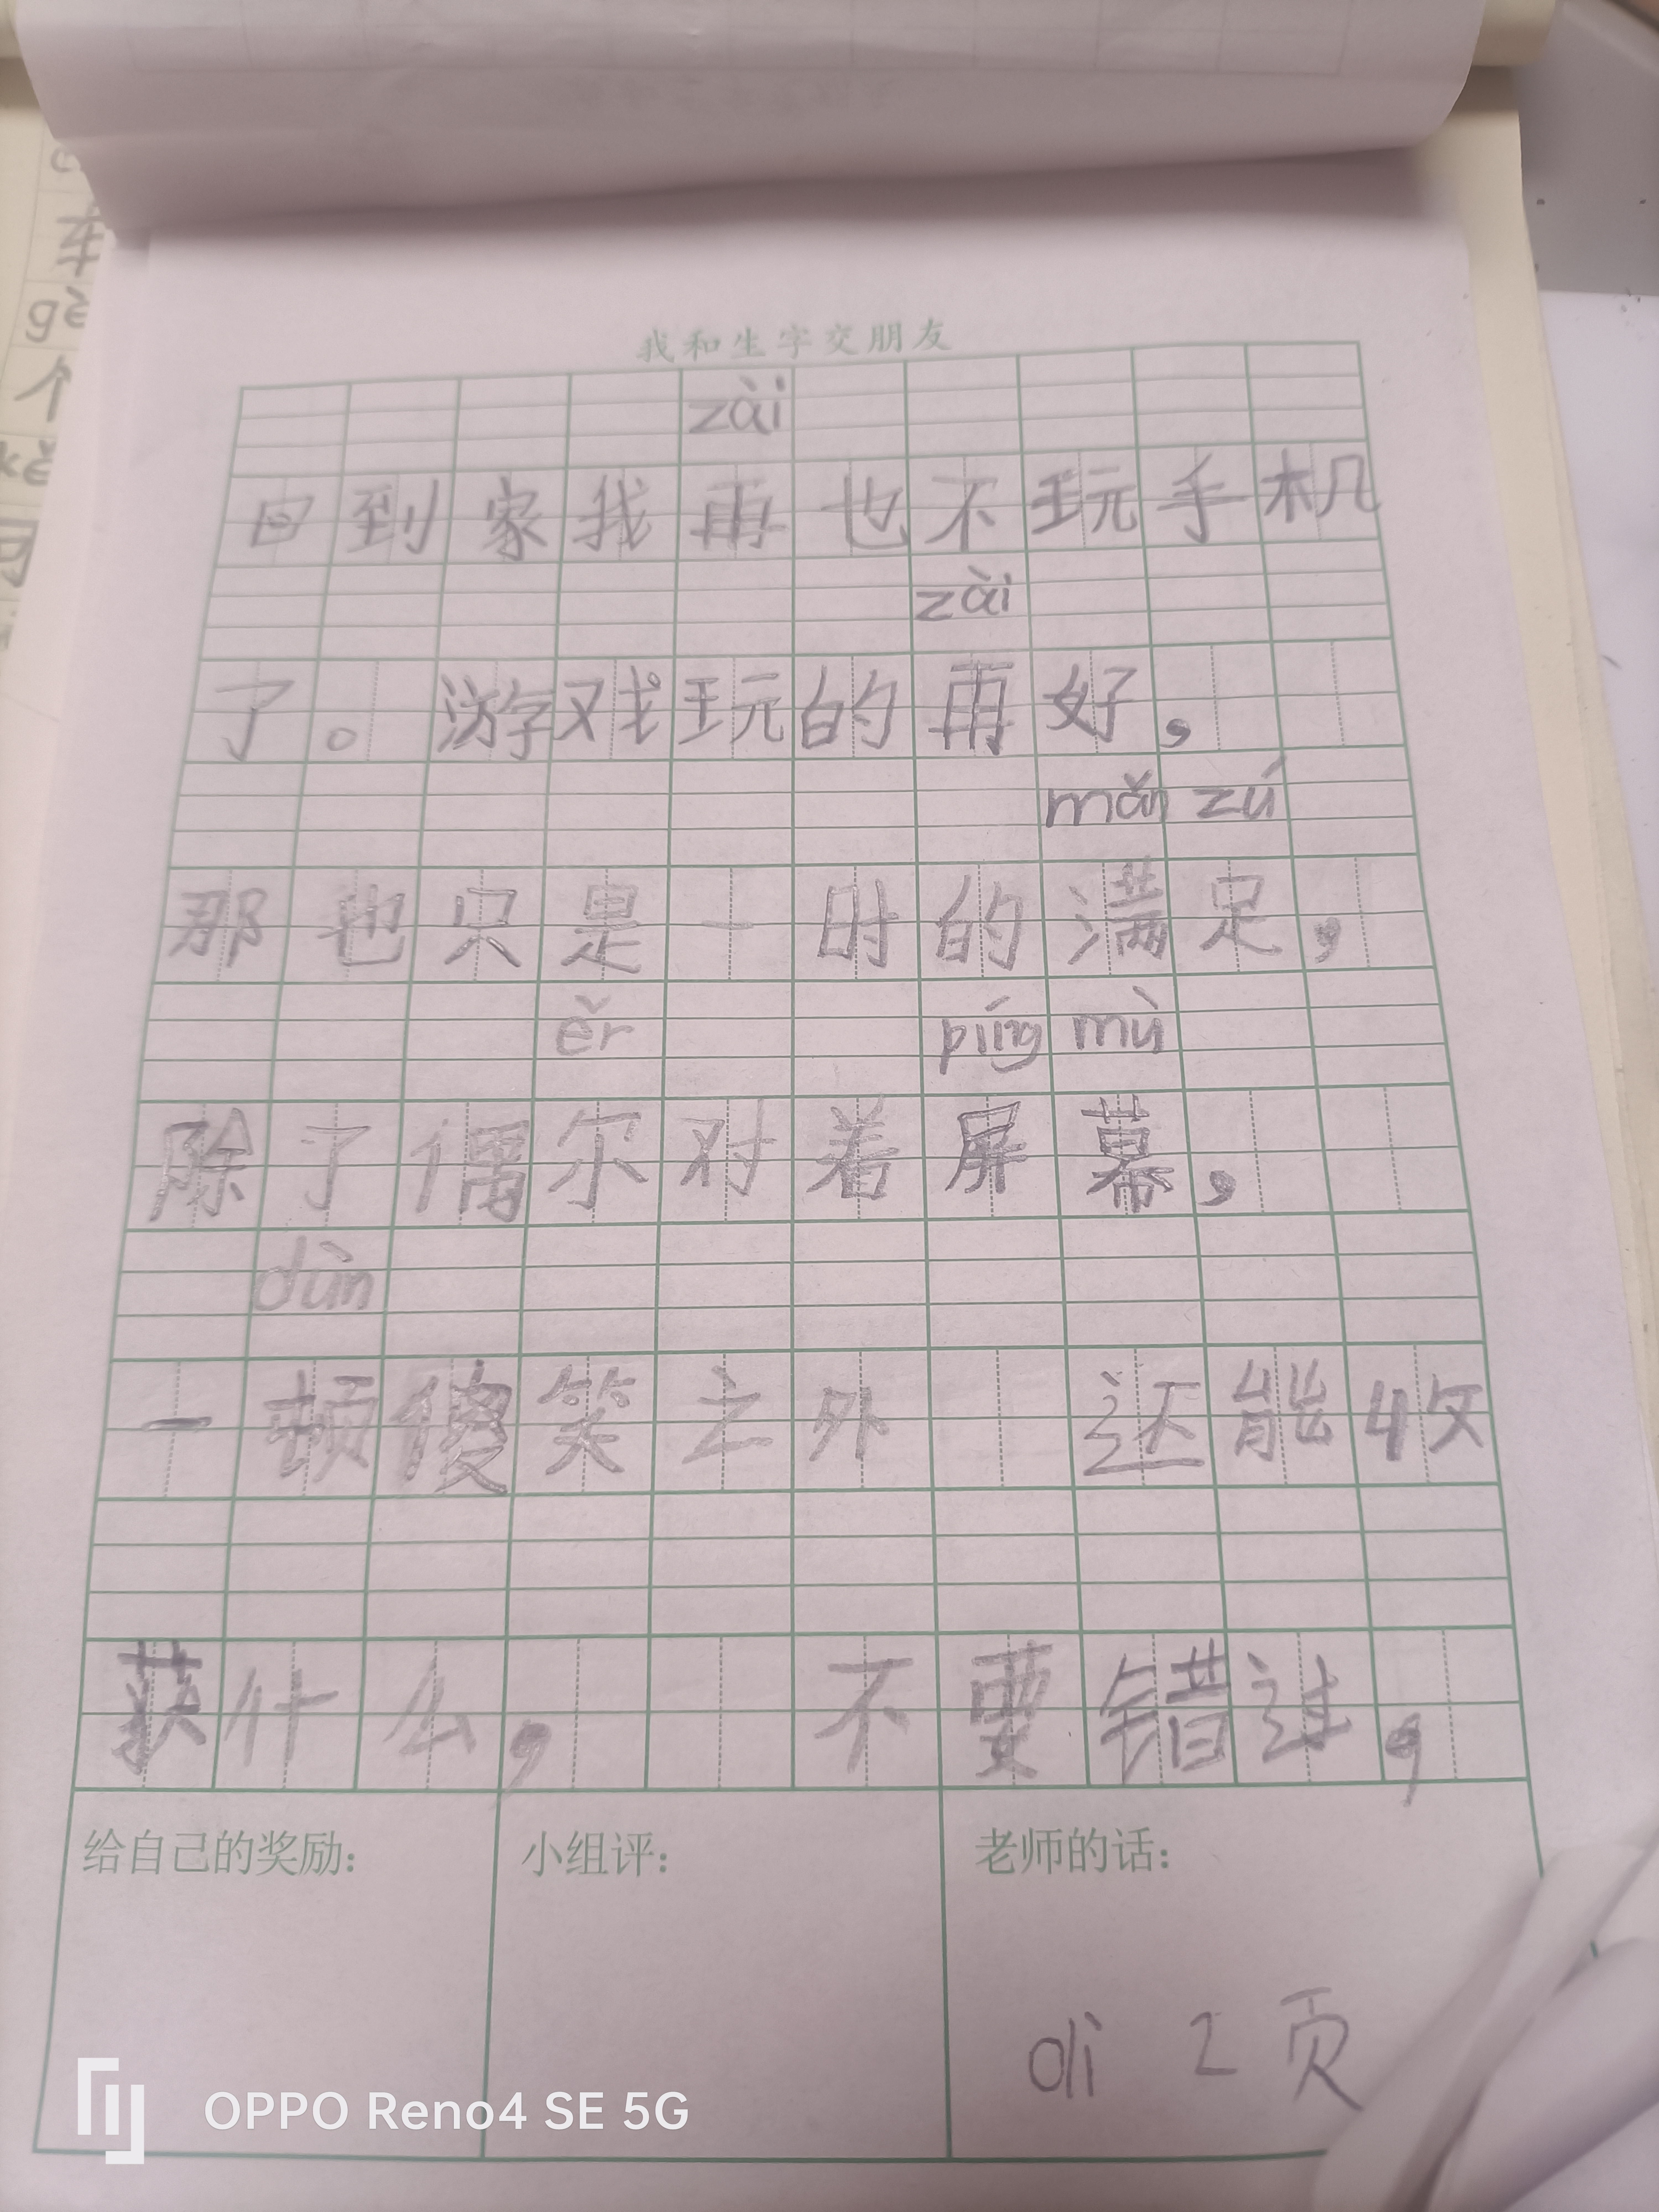 我和生字交朋友
zài
回到家我再也不玩手机
zài
了。游戏玩的再好,
mǎn zú
那也只是一时的满足,
ěr píng mù
除了偶尔对着屏幕,
dùn
一顿傻笑之外 还能收
获什么, 不要错过,
给自己的奖励: 小组评: 老师的话:
di 2 页
OPPO Reno4 SE 5G
车
gè
个
kě
可